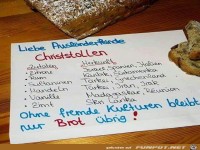 Liebe Ausländerfeinde
Christstollen
Zutaten: Herkunft
Zitrone Spanien, Italien
Rum Karibik, Südamerika
Sultaninen Türkei, Griechenland
Mandeln Türkei, Iran, Irak
Vanille Madagaskar, Réunion
Zimt Sri Lanka
Ohne fremde Kulturen bleibt
nur Brot übrig!